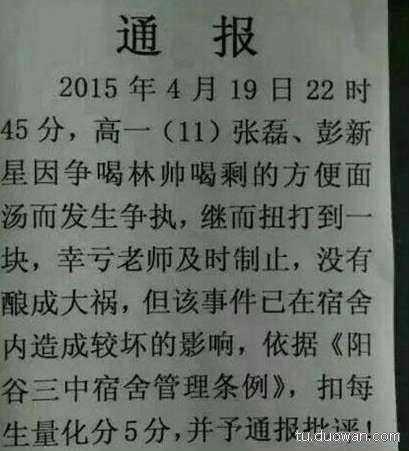 通 报
2015 年 4 月 19 日 22 时
45 分，高一（11）张磊、彭新
星因争喝林帅喝剩的方便面
汤而发生争执，继而扭打到一
块，幸亏老师及时制止，没有
酿成大祸，但该事件已在宿舍
内造成较坏的影响，依据《阳
谷三中宿舍管理条例》，扣每
生量化分 5 分，并予通报批评！
tu.duowan.com